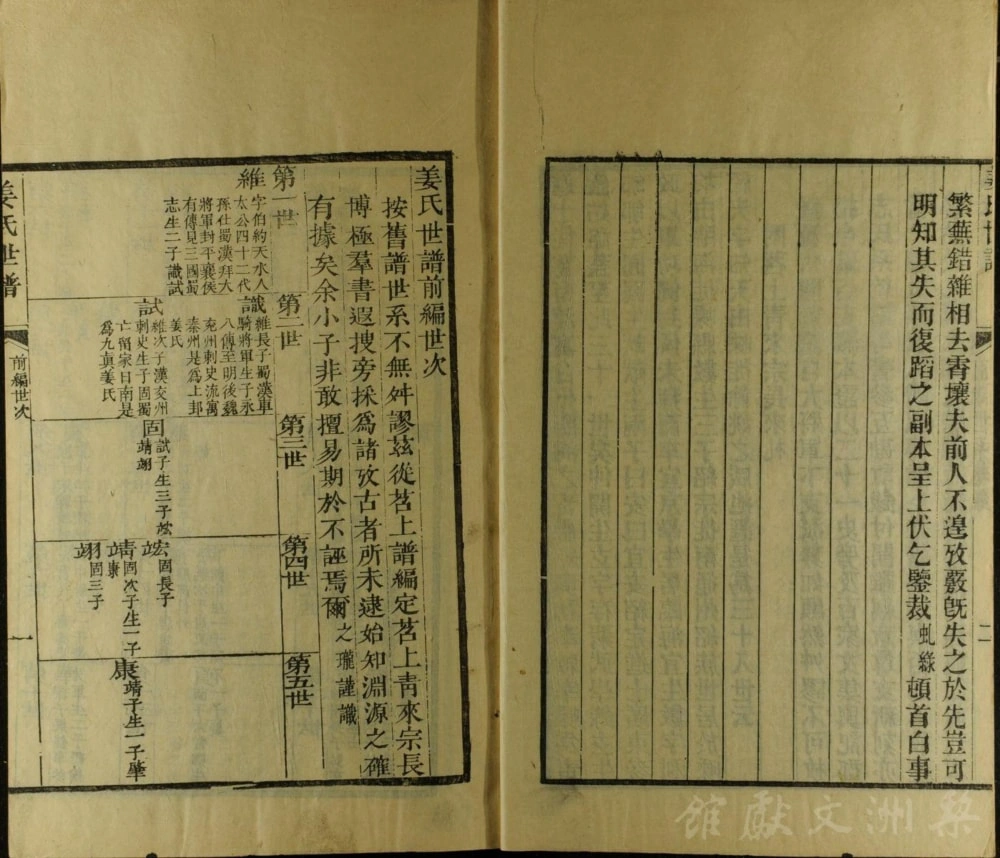 繁蕪錯雜相去霄壤夫前人不遑攷覈旣失之於先豈可
明知其失而復蹈之副本呈上伏乞鑒裁虬綠頓首白事
二
姜氏世譜前編世次
按舊譜世系不無舛謬茲從茗上譜編定茗上靑來宗長
博極羣書遐搜旁採爲諸攷古者所未逮始知淵源之確
有據矣余小子非敢擅易期於不誣焉爾之瓏謹識
第一世
維
字伯約天水人
太公四十二代
孫仕蜀漢拜大
將軍封平襄侯
有傳見三國蜀
志生二子識試
第二世
識
維長子蜀漢車
騎將軍生子永
八傳至明後魏
兗州刺史流寓
秦州是爲上邽
姜氏
試
維次子漢交州
刺史生子固蜀
亡留家日南是
爲九眞姜氏
第三世
固
試子生三子竑
靖翊
第四世
竑固長子
靖固次子生一子
康
翊固三子
第五世
康靖子生一子肇
姜氏世譜
前編世次
一
梁洲文獻館